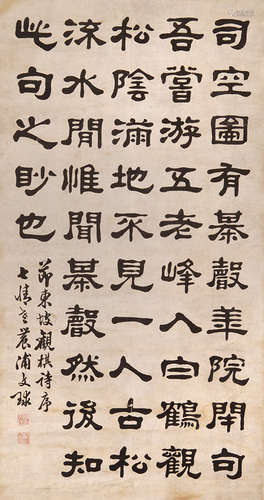 司空圖有棊聲華院閉句
吾嘗游五老峰入白鶴觀
松陰滿地不見一人古松
流水閒惟聞棊聲然後知
此句之眇也
節東坡觀棋詩序
農浦文球